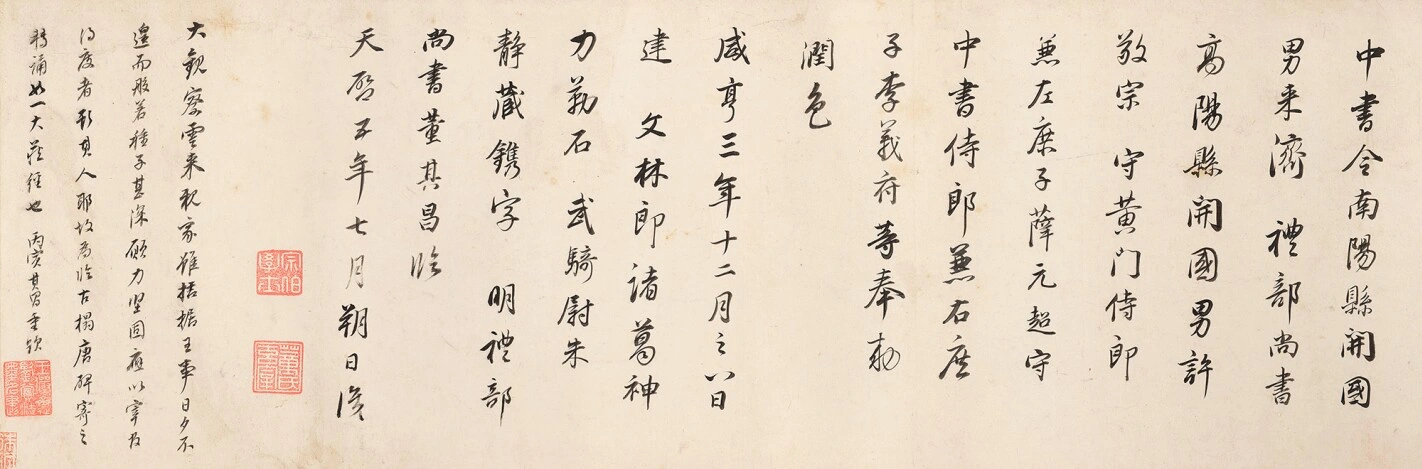 中書令南陽縣開國
男来濟 禮部尚書
高陽縣開國男許
敬宗 守黄门侍郎
兼左庶子薛元超守
中書侍郎兼右庶
子李義府等奉勅
潤色
咸亨三年十二月之八日
建 文林郎諸葛神
力勒石 武騎尉朱
静藏鐫字 明禮部
尚書董其昌臨
天啓五年七月朔日
大觀察雲来親家雖拮据王事日夕不
遑而般若種子甚深願力堅固應以宰官
得度者款其人耶故為臨古榻唐碑寄之
轉誦如一大藏経也 丙寅其昌重題
宗伯學士
董氏玄宰